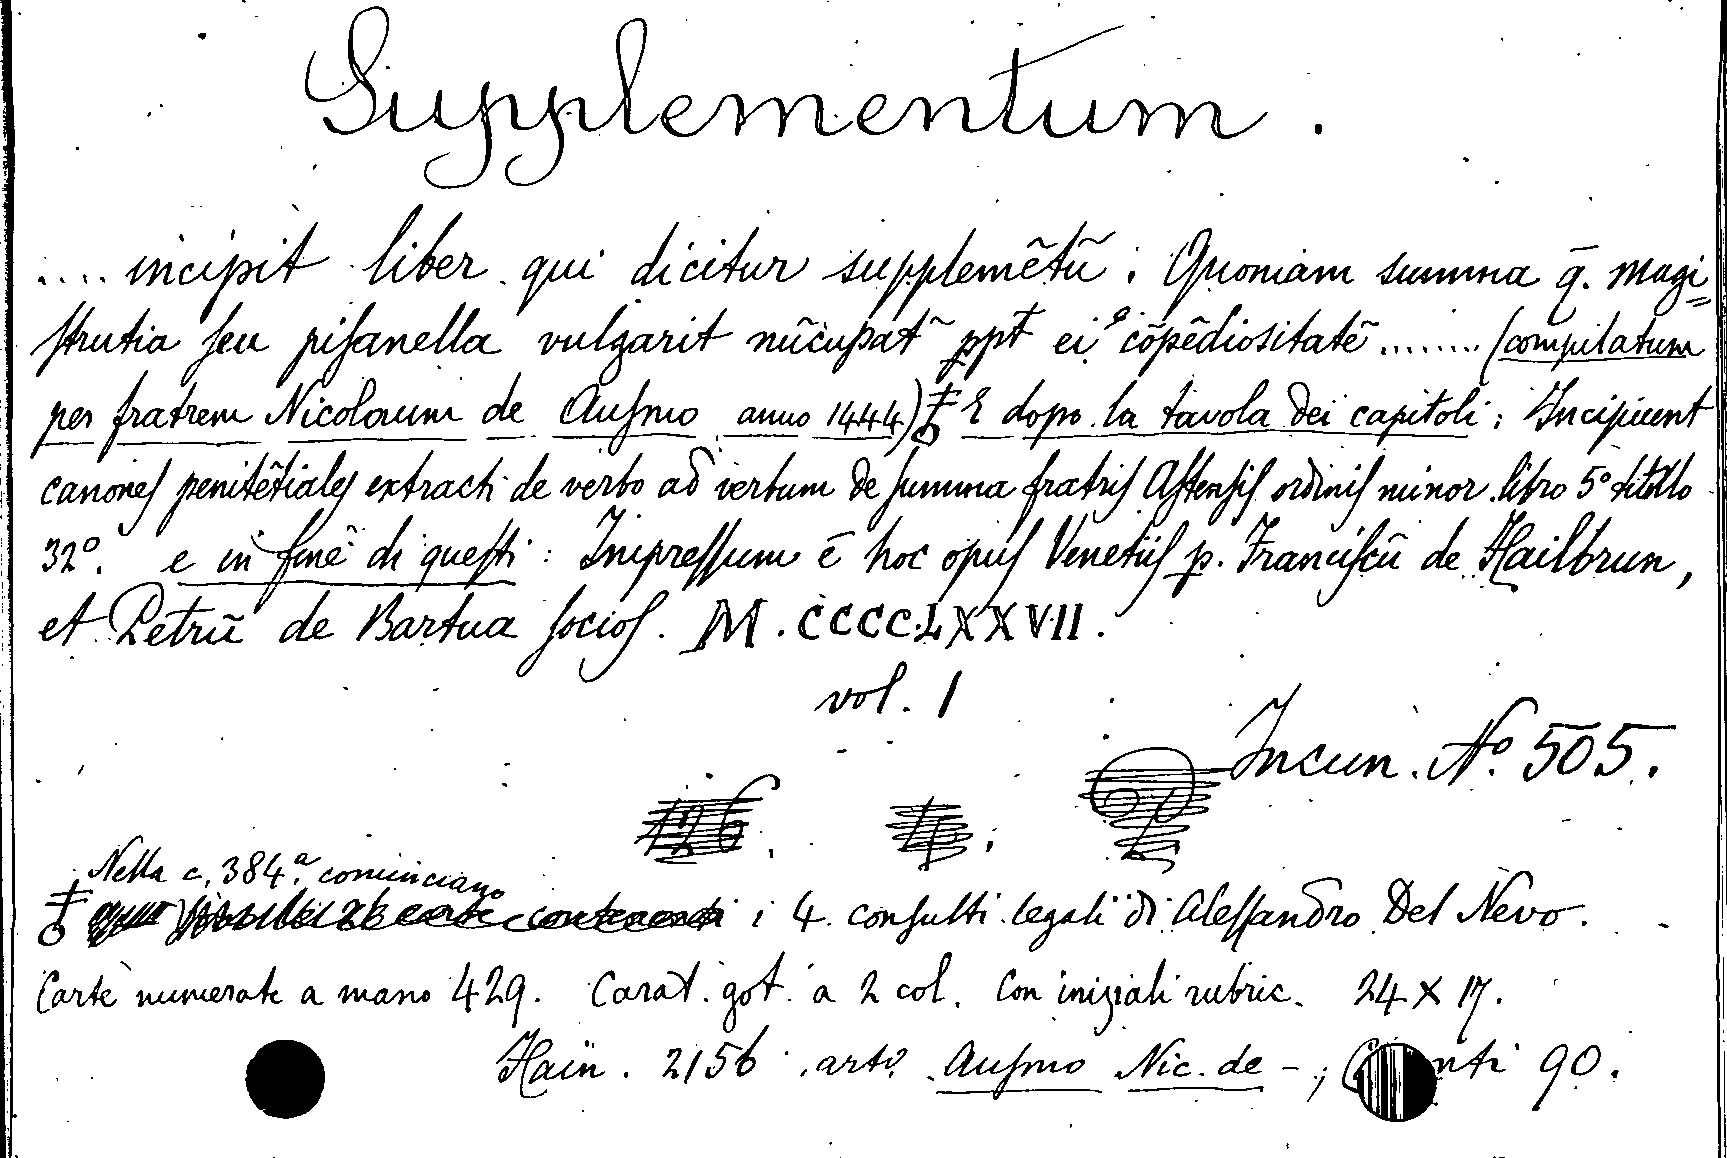 Supplementum.
.... incipit liber qui dicitur supplemētū. Quoniam summa q̄. magi=
strutia seu pisanella vulgarit nūcupat̄ ppt̄ ei9 cōpēdiositatē ........ (compilatum
per fratrem Nicolaum de Ausmo anno 1444) E dopo la tavola dei capitoli: Incipiunt
canones penitētiales extracti de verbo ad verbum de summa fratris Astensis ordinis minor. libro 5º titullo
32º. e in fine di questi: Impressum ē hoc opus Venetiis p. Franciscū de Hailbrun,
et Petrū de Bartua socios. M.CCCC.LXXVII.
vol. 1
Incun. Nº. 505.
Nella c. 384.ª cominciano
i 4. consulti legali di Alessandro Del Nevo.
Carte numerate a mano 429. Carat. got. a 2 col. Con iniziali rubric. 24 X 17.
Hain. 2156 arto. Ausmo Nic. de - ; 90.